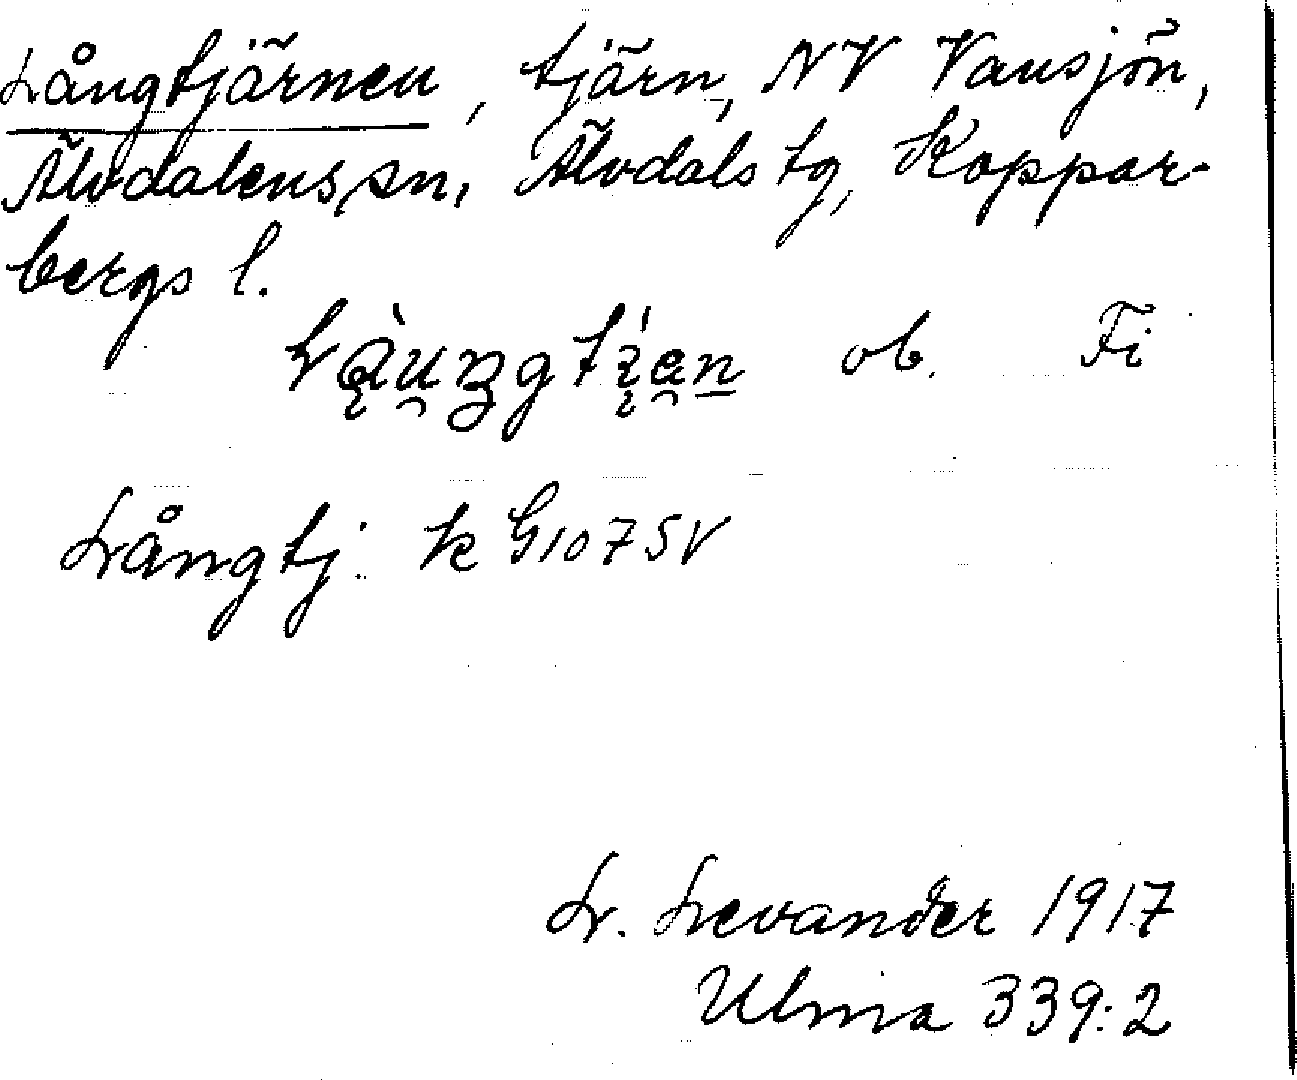 Långtjärnen, tjärn, NV Vansjön,
Älvdalens sn, Älvdals tg, Koppar-
bergs l.
ob. Fi
Långtj. k G1075V
L. Levander 1917
Ulma 339:2